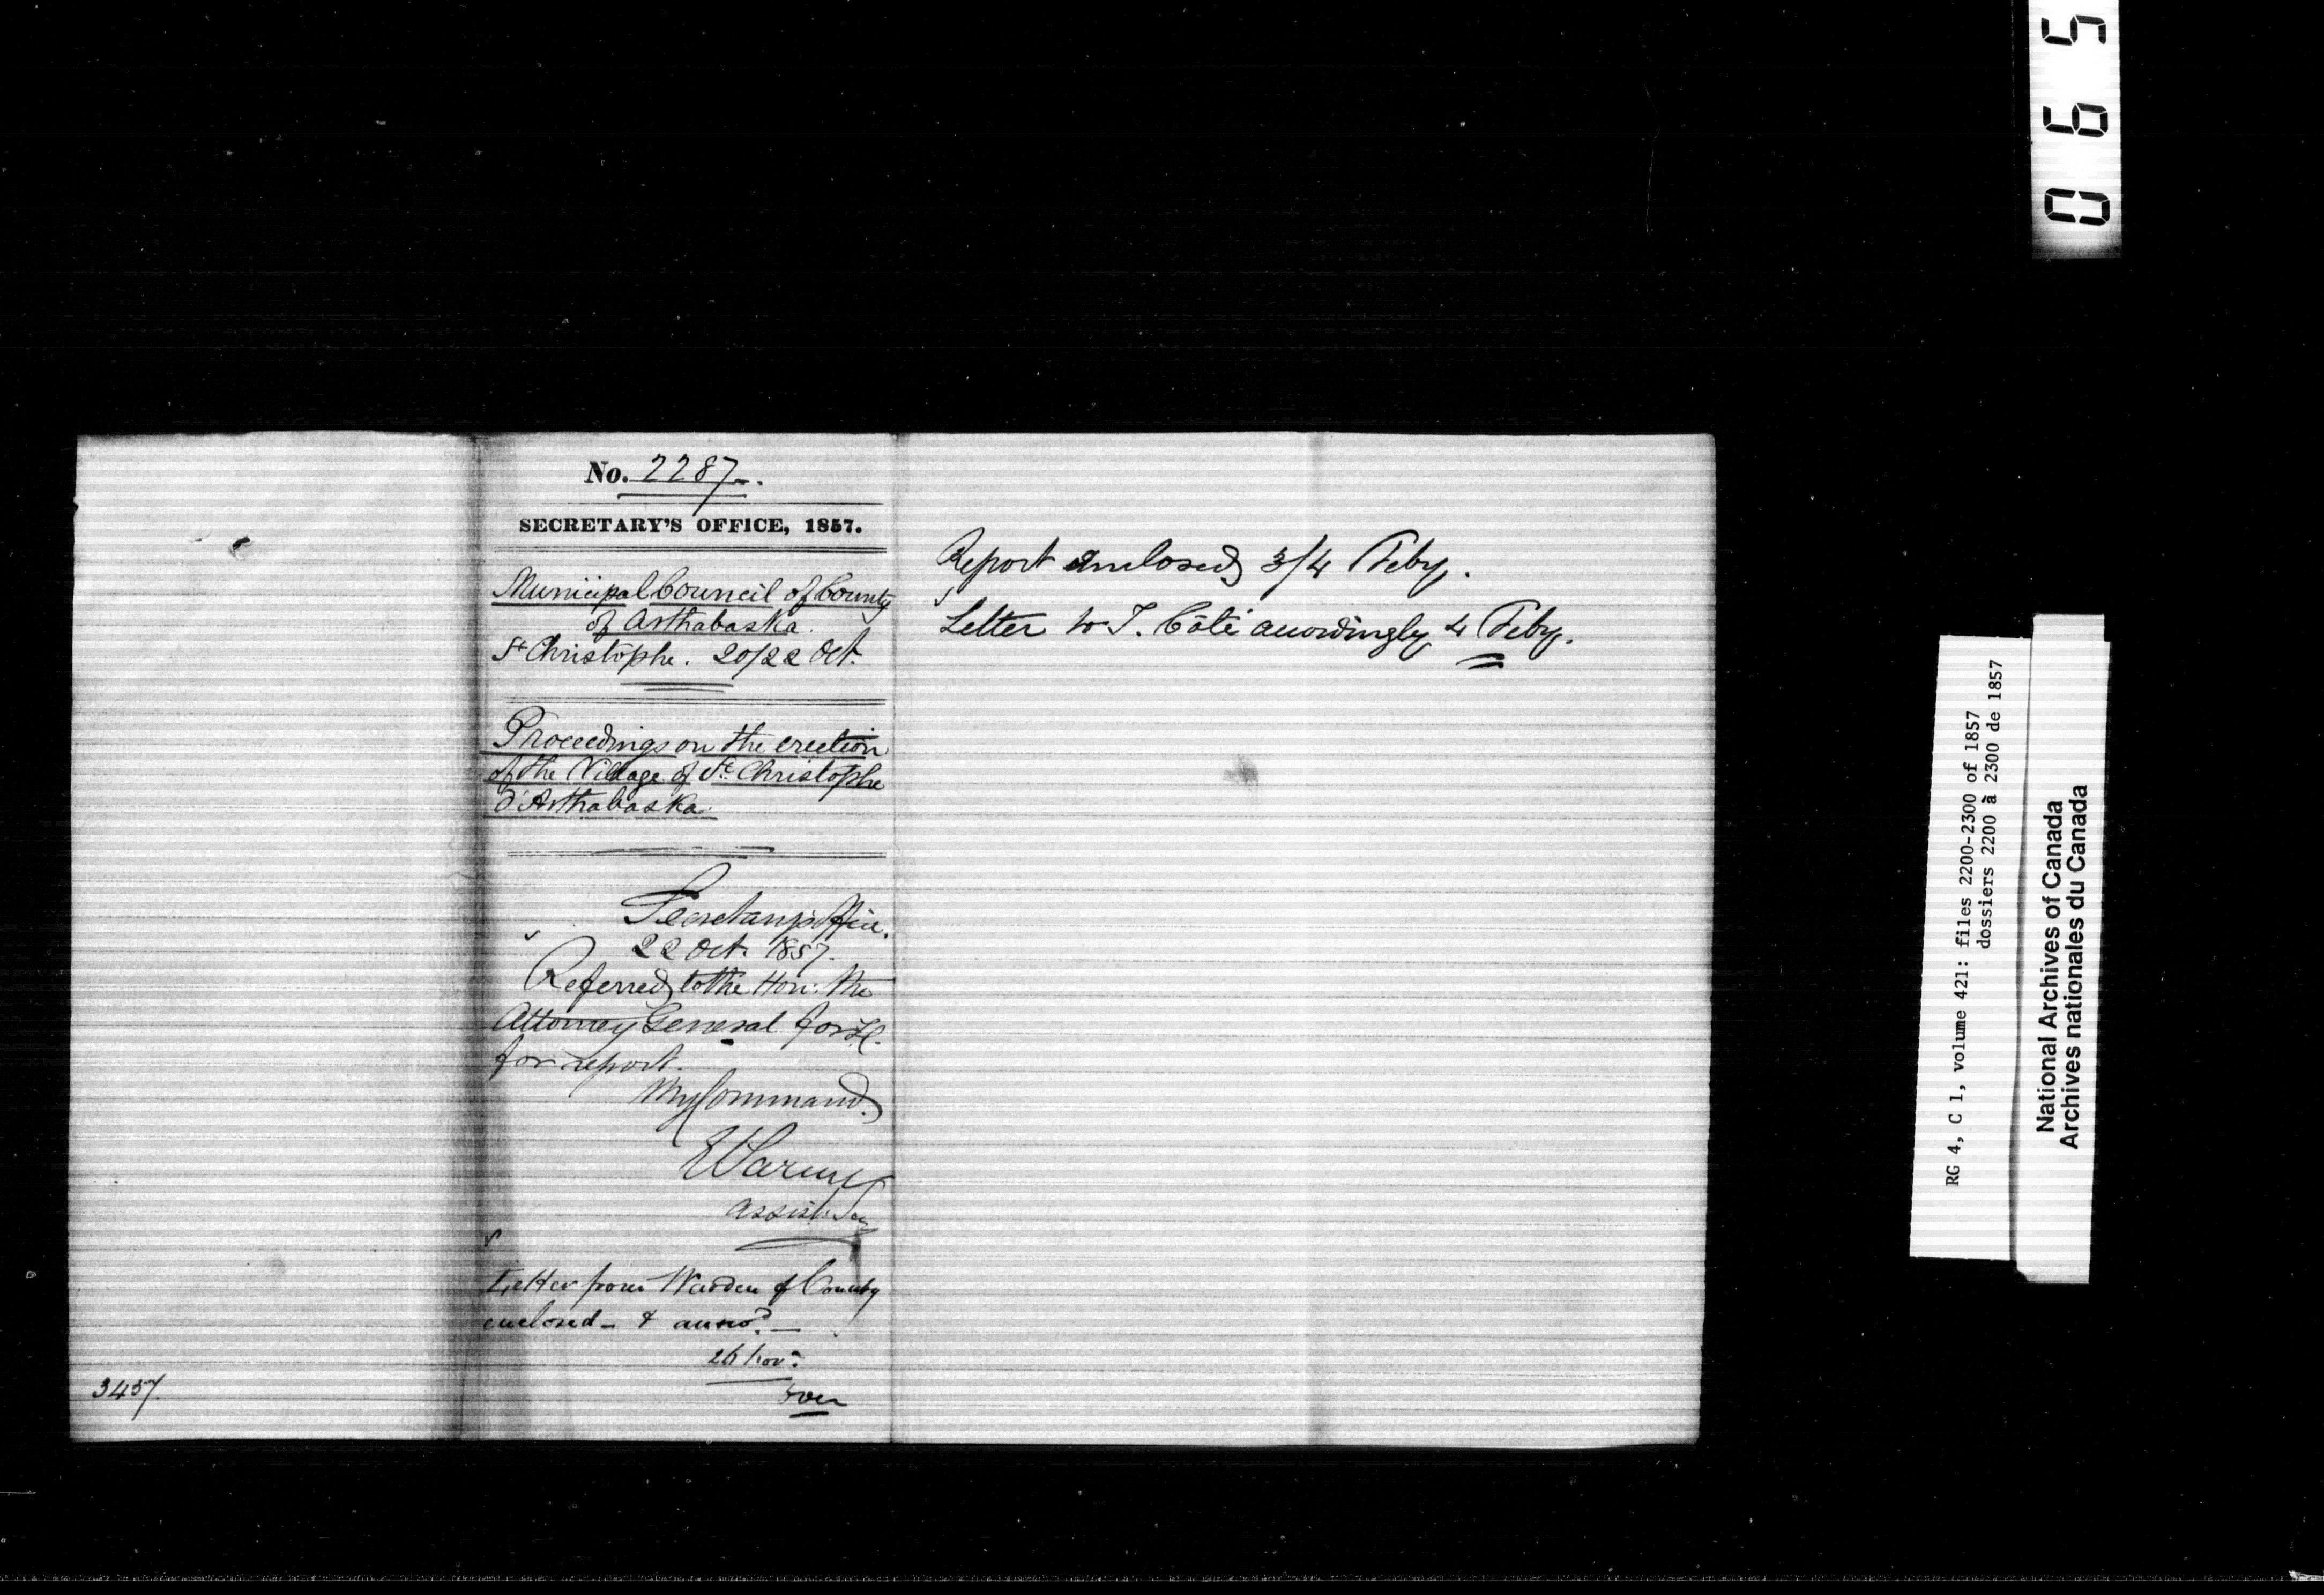 No. 2287-.
SECRETARY'S OFFICE, 1857.
Municipal Council of County
of Arthabaska.
St Christophe. 20/22 Oct.
Proceedings on the erection
of the Village of St. Christophe
d'Arthabaska.
Secretary's Office.
22 Oct. 1857.
Referred to the Hon: the
Attorney General for
for report.
By Command.
Assist. Secy
Letter from Warden of County
enclosed - & answd. -
26 Nov.
over
3457.
Report enclosed 3/4 Feby.
Letter to T. Côté accordingly 4 Feby.
065
RG 4, C 1, volume 421: files 2200-2300 of 1857
dossiers 2200 à 2300 de 1857
National Archives of Canada
Archives nationales du Canada